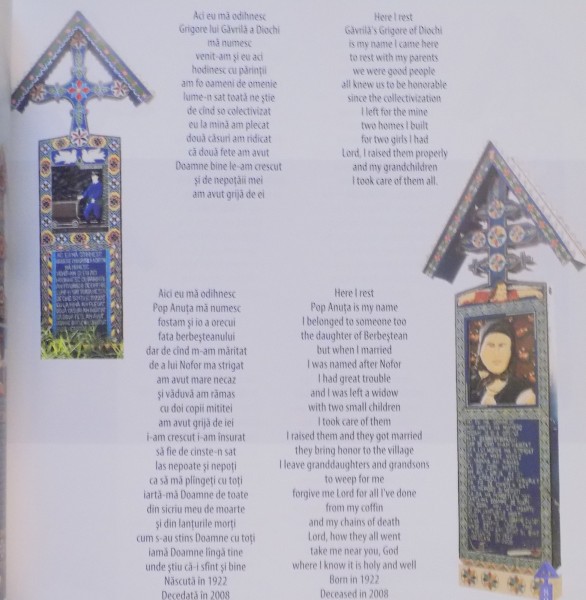 Aci eu mă odihnesc
Grigore lui Găvrilă a Diochi
mă numesc
venit-am și eu aci
hodinesc cu părinții
am fo oameni de omenie
lume-n sat toată ne știe
de cînd so colectivizat
eu la mină am plecat
două căsuri am ridicat
că două fete am avut
Doamne bine le-am crescut
și de nepoțăii mei
am avut grijă de ei
Here I rest
Găvrilă's Grigore of Diochi
is my name I came here
to rest with my parents
we were good people
all knew us to be honorable
since the collectivization
I left for the mine
two homes I built
for two girls I had
Lord, I raised them properly
and my grandchildren
I took care of them all.
Aici eu mă odihnesc
Pop Anuța mă numesc
fostam și io a orecui
fata berbeșteanului
dar de cînd m-am măritat
de a lui Nofor ma strigat
am avut mare necaz
și văduvă am rămas
cu doi copii mititei
am avut grijă de iei
i-am crescut i-am însurat
să fie de cinste-n sat
las nepoate și nepoți
ca să mă plîngeți cu toți
iartă-mă Doamne de toate
din sicriu meu de moarte
și din lanțurile morți
cum s-au stins Doamne cu toți
iamă Doamne lîngă tine
unde știu că-i sfînt și bine
Născută în 1922
Decedată în 2008
Here I rest
Pop Anuța is my name
I belonged to someone too
the daughter of Berbeștean
but when I married
I was named after Nofor
I had great trouble
and I was left a widow
with two small children
I took care of them
I raised them and they got married
they bring honor to the village
I leave granddaughters and grandsons
to weep for me
forgive me Lord for all I've done
from my coffin
and my chains of death
Lord, how they all went
take me near you, God
where I know it is holy and well
Born in 1922
Deceased in 2008